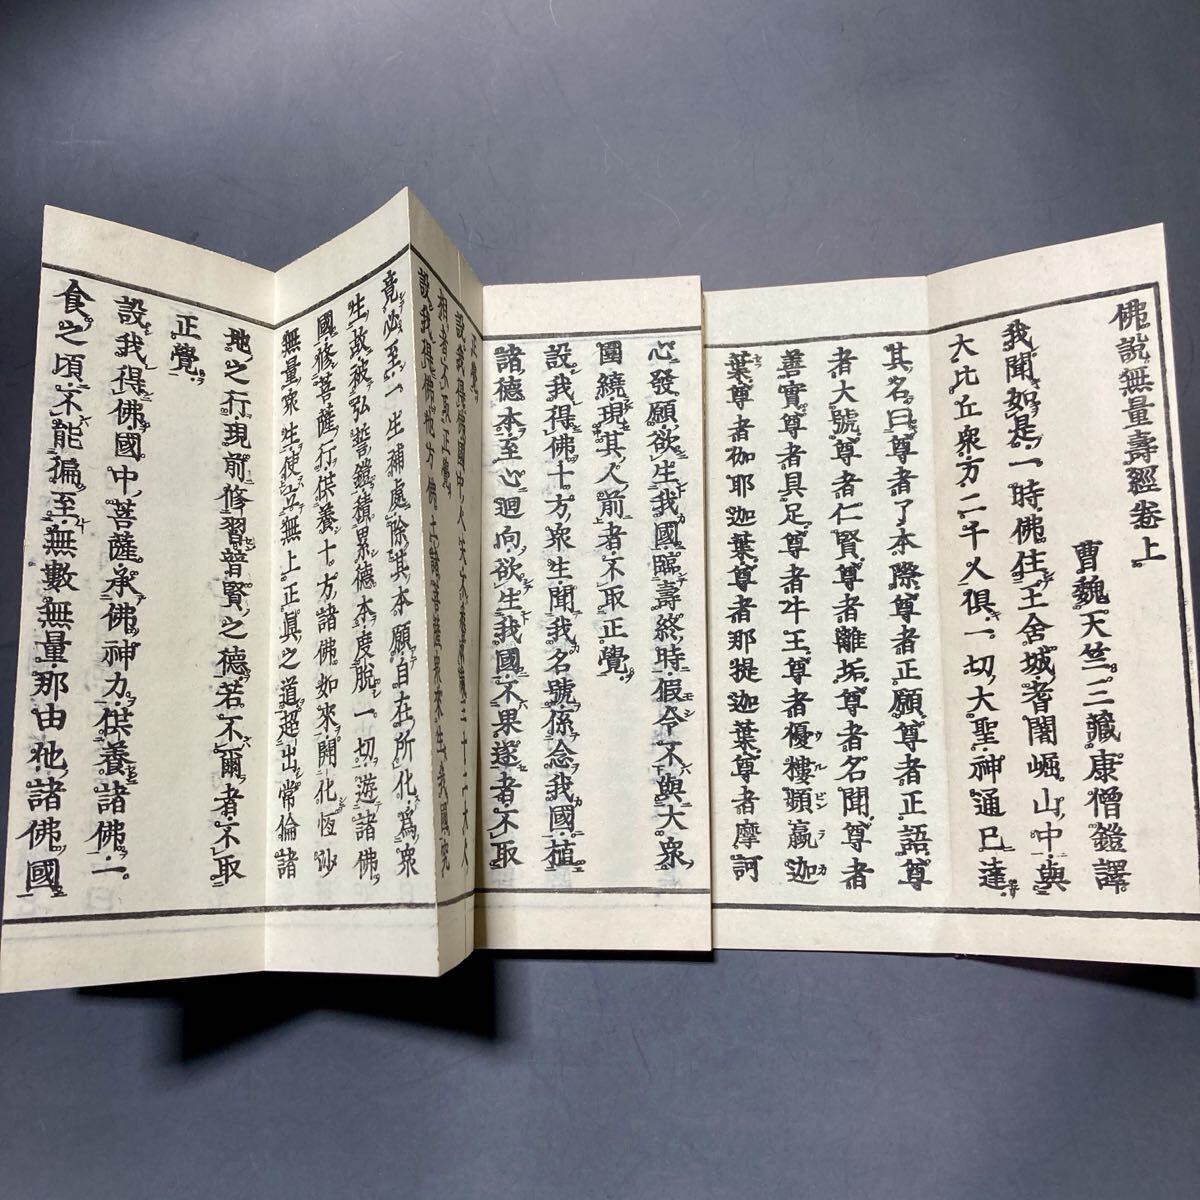 佛說無量壽經卷上
曹魏天竺三藏康僧鎧譯
我聞如是一時佛住王舍城耆闍崛山中與
大比丘衆万二千人俱一切大聖神通已達
其名曰尊者了本際尊者正願尊者正語尊
者大號尊者仁賢尊者離垢尊者名聞尊者
善實尊者具足尊者牛王尊者優樓頻蠃迦
葉尊者伽耶迦葉尊者那提迦葉尊者摩訶
心發願欲生我國臨壽終時假令不與大衆
圍繞現其人前者不取正覺
設我得佛十方衆生聞我名號係念我國植
諸德本至心迴向欲生我國不果遂者不取
正覺
設我得佛國中人天不悉成滿三十二大人
相者不取正覺
設我得佛他方佛土諸菩薩衆來生我國究
竟必至一生補處除其本願自在所化爲衆
生故被弘誓鎧積累德本度脫一切遊諸佛
國修菩薩行供養十方諸佛如來開化恆沙
無量衆生使立無上正眞之道超出常倫諸
地之行現前修習普賢之德若不爾者不取
正覺
設我得佛國中菩薩承佛神力供養諸佛一
食之頃不能徧至無數無量那由他諸佛國